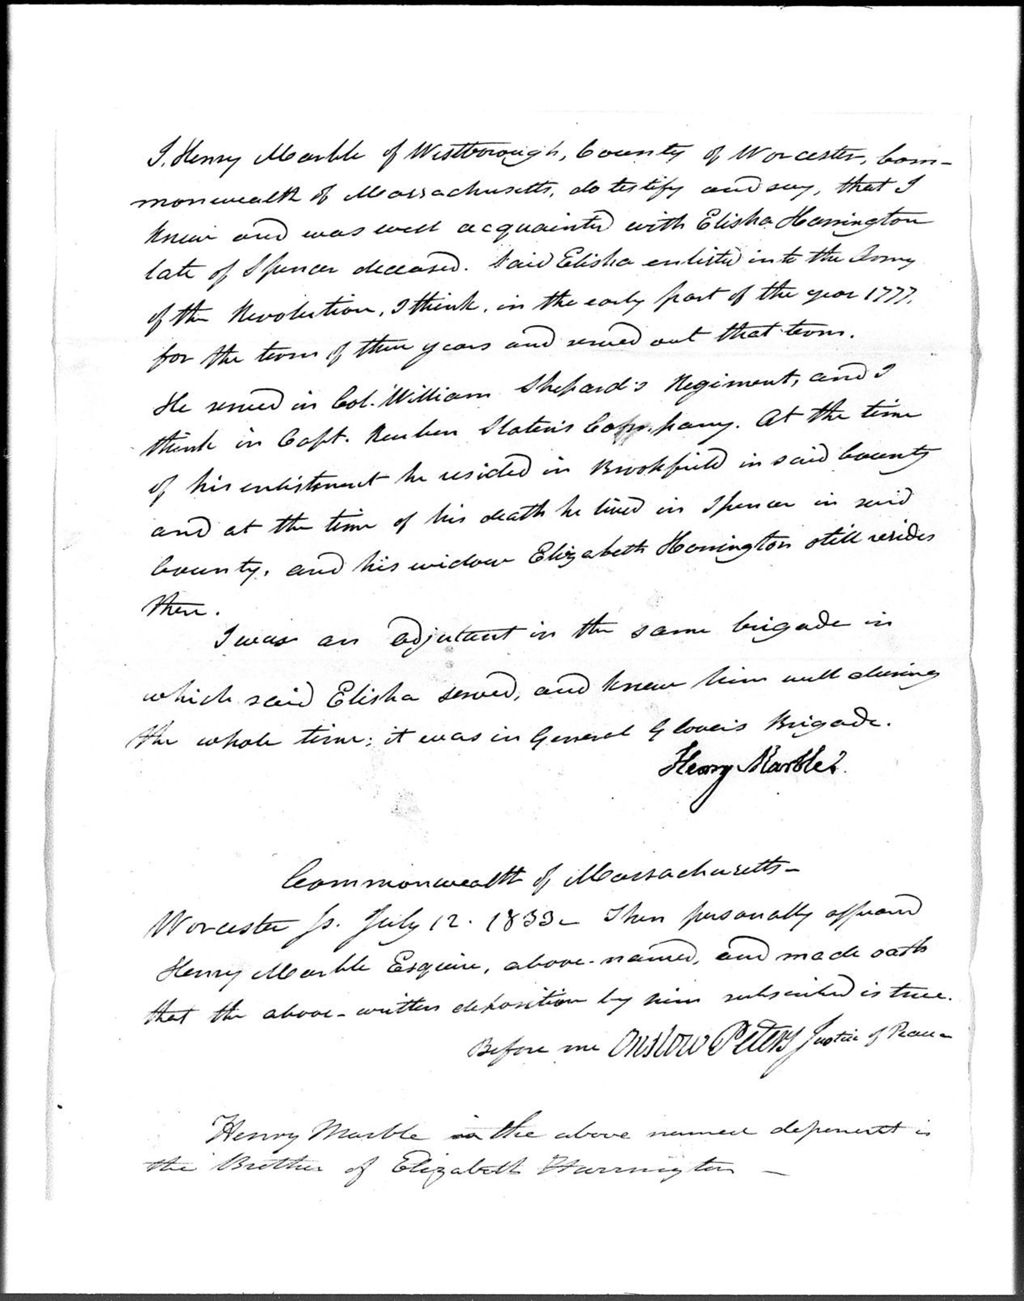 I, Henry Marble of Westborough, County of Worcester, Com-
monwealth of Massachusetts, do testify and say, that I
knew and was well acquainted with Elisha Harrington
late of Spencer deceased. Said Elisha enlisted into the Army
of the Revolution, I think, in the early part of the year 1777.
for the term of three years and served out that term.
He served in Col. William Shepard's Regiment, and I
think in Capt. Reuben Slater's Company. At the time
of his enlistment he resided in Brookfield in said County
and at the time of his death he lived in Spencer in said
County, and his widow Elizabeth Harrington still resides
there.
I was an adjutant in the same brigade in
which said Elisha served, and knew him well during
the whole time; it was in General Glover's Brigade.
Henry Marble
Commonwealth of Massachusetts-
Worcester Ss. July 12. 1833- Then personally appeared
Henry Marble Esquire, above-named, and made oath
that the above-written deposition by him subscribed is true.
Before me Onslow Peters Justice of Peace-
Henry Marble the above named deponent is
the Brother of Elizabeth Harrington -